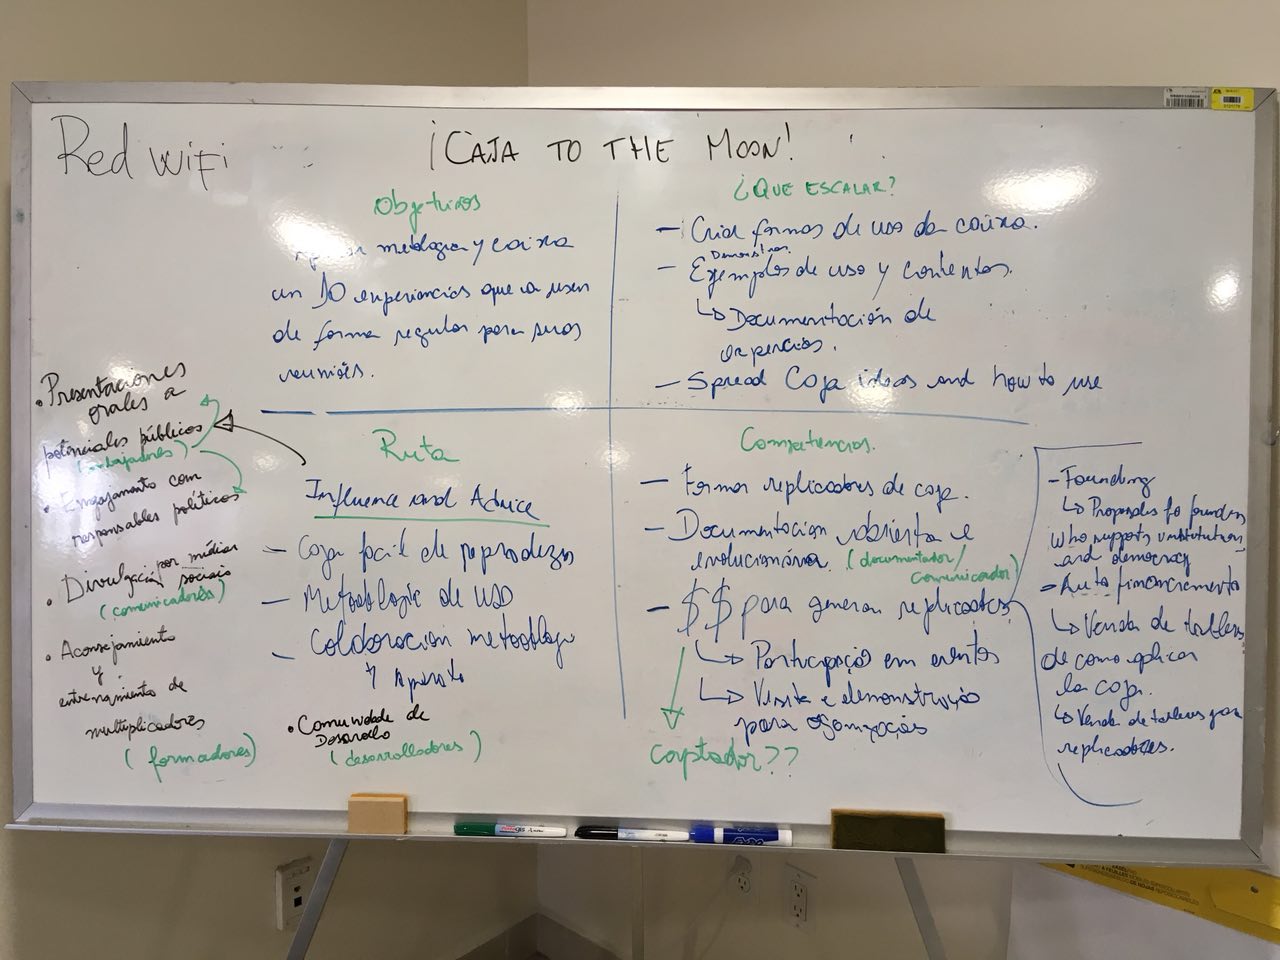 Red WiFi
¡CAJA TO THE MOON!
Objetivos
metologia y caixa
en 10 experiencias que la usen
de forma regular para suas
reuniões.
¿QUE ESCALAR?
- Criar formas de uso da caixa.
Demonstrar
- Exemplos de uso y contentos.
↳ Documentación de
experiencias.
- Spread Caja ideas and how to use
• Presentaciones
orales a
potenciales públicos
(trabajadores)
• Engajamento com
responsables políticos
• Divulgación por mídias
sociais
(comunicadores)
• Aconsejamiento
y
entrenamiento de
multiplicadores
(formadores)
Ruta
Influence and Advice
- Caja facil de reproducir
- Metodologia de uso
- Colaboración metodologo
y Aparato
• Comunidade de
Desarrollo
(desarrolladores)
Competencias.
- Formar replicadores de caja.
- Documentacion abierta e
evolucionária. (documentador/
comunicador)
- $$ para generar replicadores
↳ Participação em eventos
↳ Visita e demonstração
para organizações
captador??
- Founding
↳ Proposales to founders
who supports institutution
and democracy
- Auto financiamento
↳ Venda de talleres
de como aplicar
la caja.
↳ Venda de talleres para
replicadores.